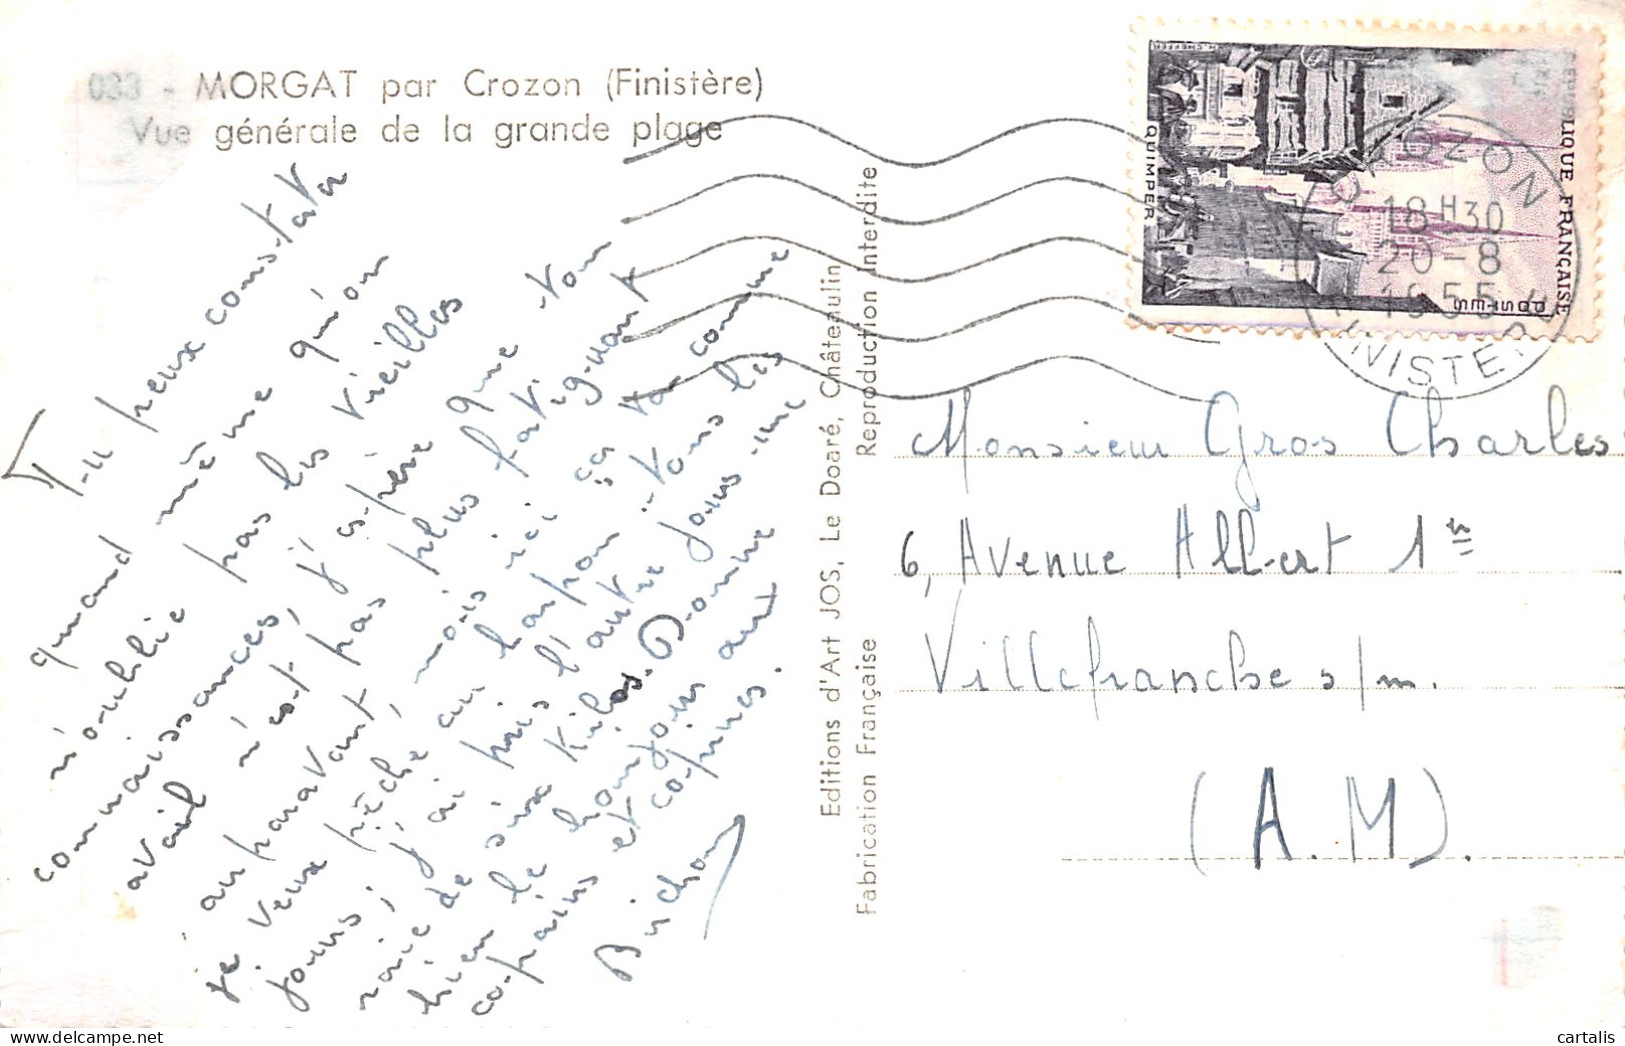 033 - MORGAT par Crozon (Finistère)
Vue générale de la grande plage
Tu peux constater
quand même qu'on
n'oublie pas les vieilles
connaissances, j'espère que ton
avail n'est pas plus fatiguant
auparavant, mais ici ça va comme
je veux pêche au harpon tous les
jours; j'ai pris l'autre jour une
raie de six Kilos. Donne
bien le bonjour aux
copains et copines.
Editions d'Art JOS, Le Doaré, Châteaulin
Fabrication Française
Reproduction Interdite
LIQUE FRANÇAISE
POSTES
QUIMPER
CROZON
18H30
20-8
1955
FINISTERE
Monsieur Gros Charles
6, Avenue Albert 1er
Villefranche s/m.
(A.M).
cartalis